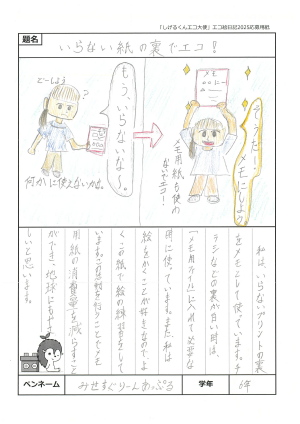 「しげるくんエコ大使」エコ絵日記2025応募用紙
題名
いらない紙の裏でエコ!
どーしよう
もう、いらないな。
何かに使えないかな。
メモ
そうだ!
メモにしよう
メモ用紙も使わ
ないでエコ!
私は、いらないプリントの裏
をメモとして使っています。チ
ラシなどの裏が白い時は、
「メモ用ファイル」に入れて必要な
用に使っています。また、私は
絵をかくことが好きなのでよ
くこの紙で絵の練習をして
います。この活動を行うことでメモ
用紙の消費量を減らすこと
ができ、地球にもやさ
しいと思います。
ペンネーム
みせすぐりーんあっぷる
学年
6年